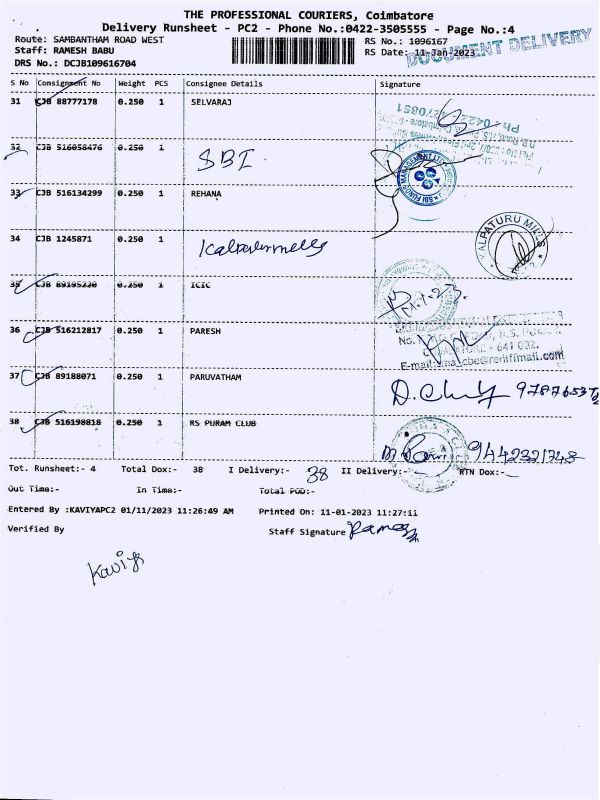 THE PROFESSIONAL COURIERS, Coimbatore
Delivery Runsheet - PC2 - Phone No.:0422-3505555 - Page No.:4
Route: SAMBANTHAM ROAD WEST
RS No.: 1096167
DOCUMENT DELIVERY
Staff: RAMESH BABU
RS Date: 11-Jan-2023
DRS No.: DCJB109616704
S No Consignment No Weight PCS Consignee Details Signature
31 CJB 88777178 0.250 1 SELVARAJ
32 CJB 516058476 0.250 1 SBI
33 CJB 516134299 0.250 1 REHANA
SBI FUNDS MANAGEMENT LTD
34 CJB 1245871 0.250 1
35 CJB 89195220 0.250 1 ICIC
36 CJB 516212817 0.250 1 PARESH
37 CJB 89188071 0.250 1 PARUVATHAM
38 CJB 516198818 0.250 1 RS PURAM CLUB
Tot. Runsheet:- 4 Total Dox:- 38 I Delivery:- 38 II Delivery:- RTN Dox:-
Out Time:- In Time:- Total POD:-
Entered By :KAVIYAPC2 01/11/2023 11:26:49 AM Printed On: 11-01-2023 11:27:11
Verified By Staff Signature
Kaviya